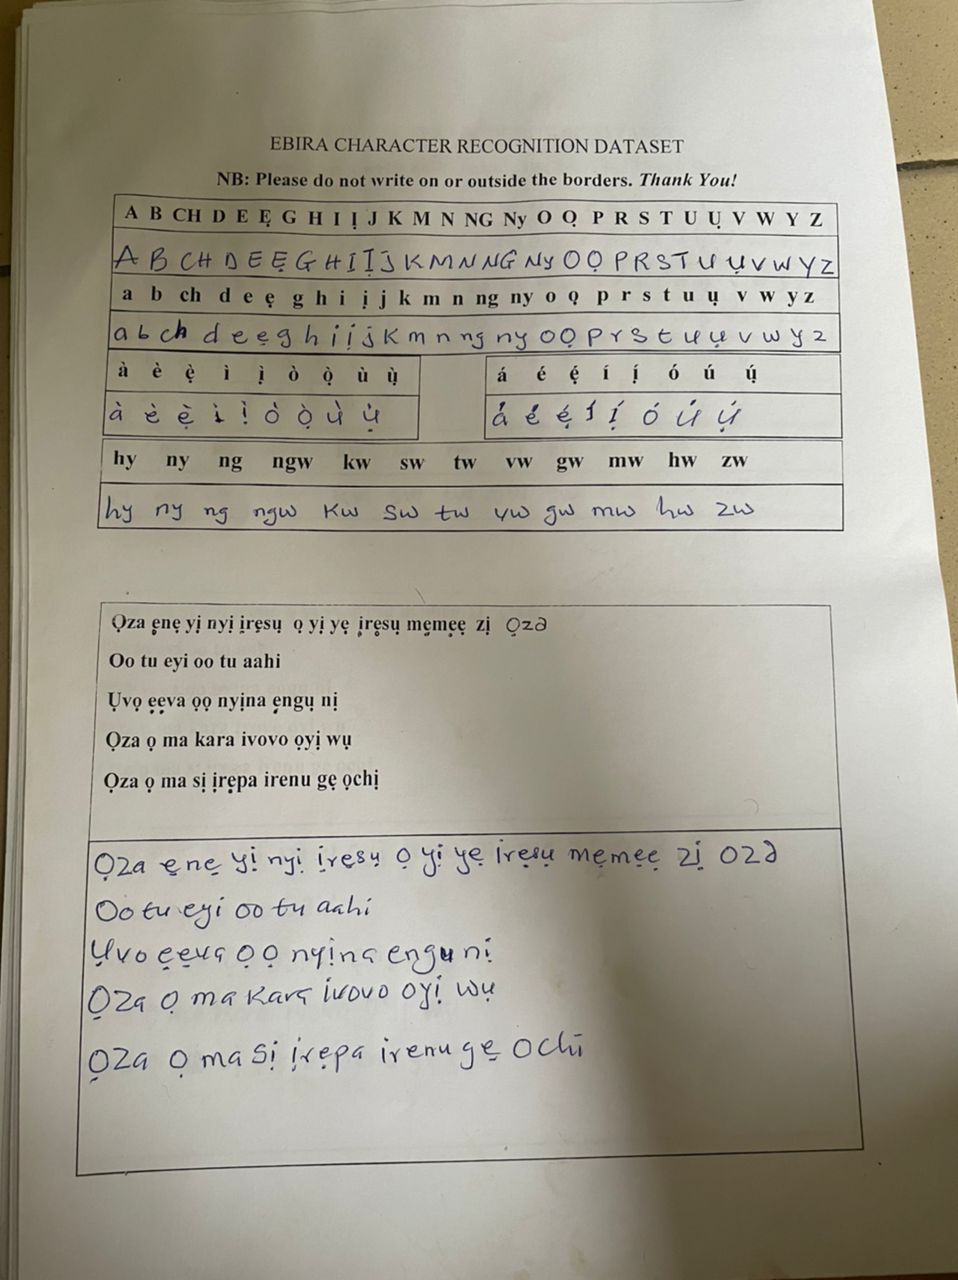 EBIRA CHARACTER RECOGNITION DATASET
NB: Please do not write on or outside the borders. Thank You!
A B CH D E Ẹ G H I Ị J K M N NG Ny O Ọ P R S T U Ụ V W Y Z
A B CH D E Ẹ G H I Ị J K M N NG Ny O Ọ P R S T U Ụ V W Y Z
a b ch d e ẹ g h i ị j k m n ng ny o ọ p r s t u ụ v w y z
a b ch d e ẹ g h i ị j k m n ng ny o ọ p r s t u ụ v w y z
à è ẹ̀ ì ị̀ ò ọ̀ ù ụ̀ á é ẹ́ í ị́ ó ú ụ́
à è ẹ̀ ì ị̀ ò ọ̀ ù ụ̀ á é ẹ́ í ị́ ó ú ụ́
hy ny ng ngw kw sw tw vw gw mw hw zw
hy ny ng ngw kw sw tw vw gw mw hw zw
Ọza ẹnẹ yị nyị ịrẹsụ ọ yị yẹ ịrẹsụ mẹmẹẹ zị Ọza
Oo tu eyi oo tu aahi
Ụvọ ẹẹva ọọ nyịna ẹngụ nị
Ọza ọ ma kara ivovo ọyị wụ
Ọza ọ ma sị ịrẹpa irenu gẹ ọchị
Ọza ẹnẹ yị nyị ịrẹsụ ọ yị yẹ irẹsụ mẹmẹẹ zị oza
Oo tu eyi oo tu aahi
Ụvo ẹẹva ọọ nyịna engu nị
Ọza ọ ma kara ivovo oyị wụ
Ọza ọ ma sị ịrẹpa irenu gẹ ochi